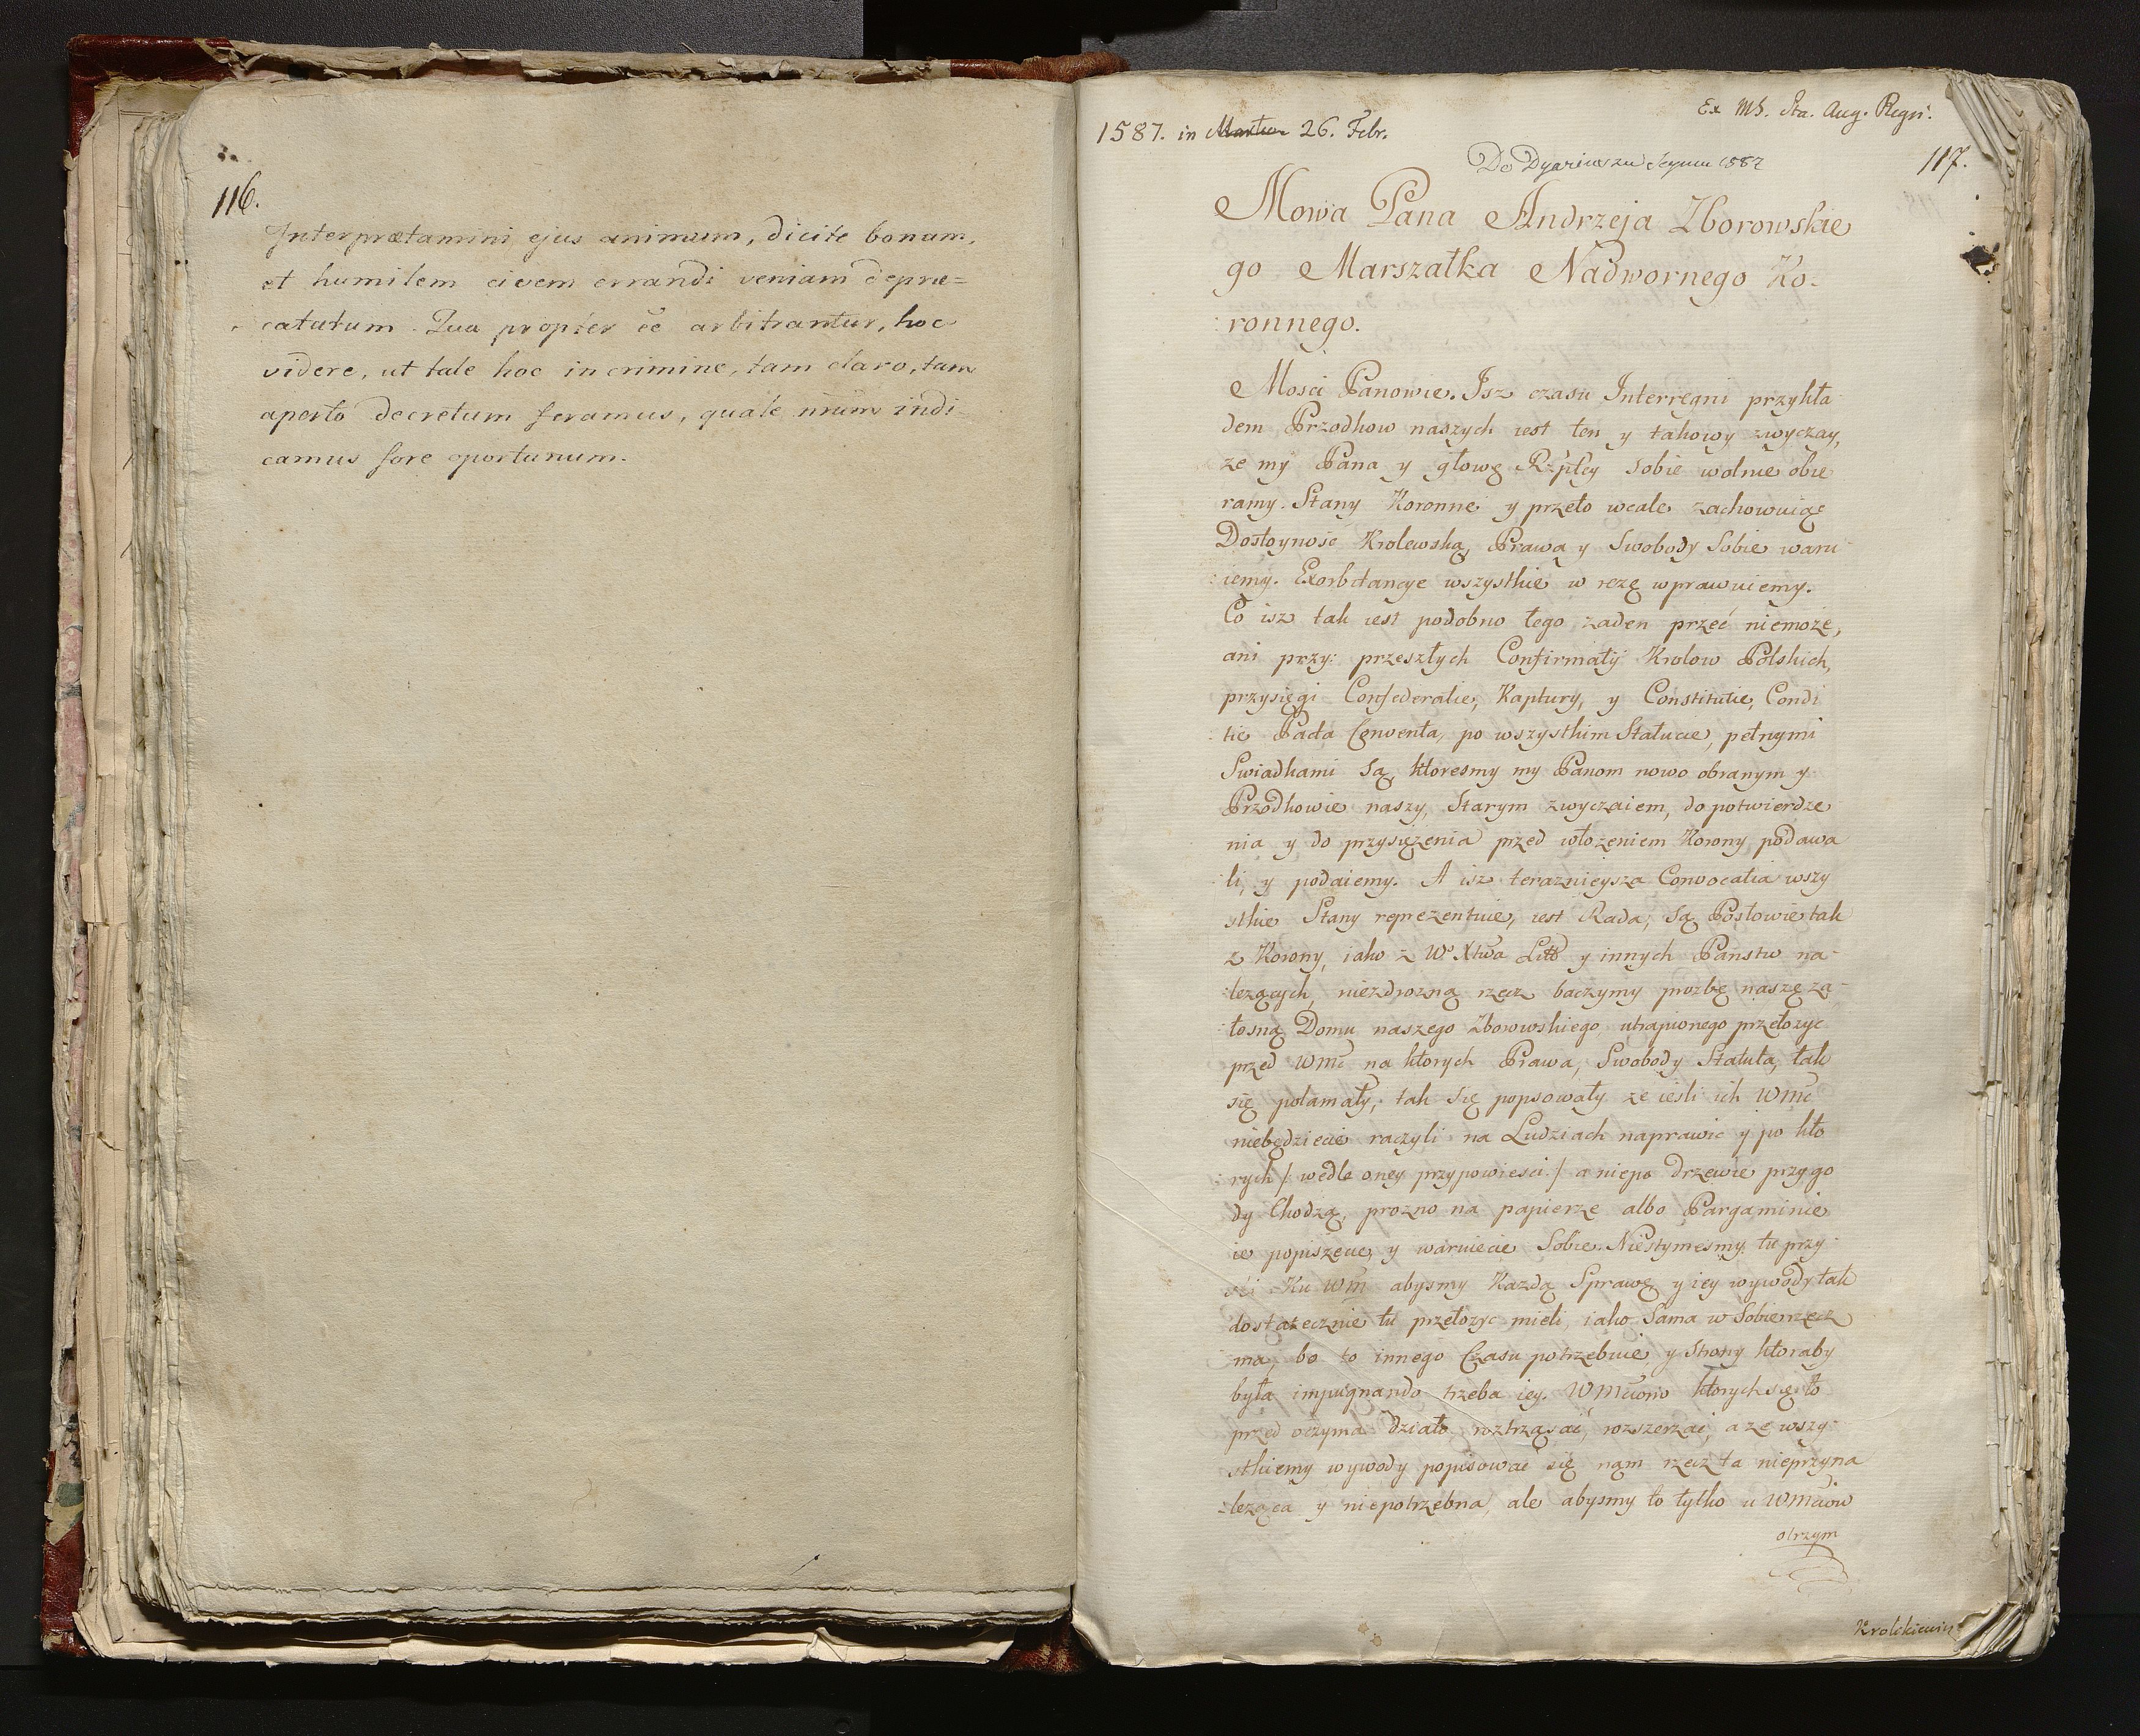 116.
Interprætamini ejus animum, dicite bonum,
et humilem civem errandi veniam depre=
catutum. Qua propter ee arbitrantur, hoc
videre, ut tale hoc in crimine, tam claro, tam
aperto decretum feramus, quale nrum indi
camus fore oportunum.
Ex MS. Sta. Aug. Regis.
1587. in Martio 26. Febr.
Do Dyariuszu Seymu 1587
117.
Mowa Pana Andrzeja Zborowskie
go Marszałka Nadwornego Ko-
ronnego.
Mosci Panowie. Isz czasu Interregni przykła
dem Przodkow naszych iest ten y takowy zwyczay,
ze my Pana y głowę Rzpłcy sobie wolnie obie
ramy. Stany Koronne y przeto wcale zachowuiąc
Dostoynosć Krolewską, Prawa y Swobody Sobie waru
iemy. Exorbitancye wszystkie w rezę wprawuiemy.
Co isz tak iest podobno tego zaden przeć niemoze,
ani przy: przeszłych Confirmaty Krolow Polskich,
przysięgi Confederatie, Kaptury, y Constitutie, Condi
tie Pacta Conventa, po wszystkim Statucie, pełnymi
Swiadkami są, ktoresmy my Panom nowo obranym y
Przodkowie naszy, Starym zwyczaiem, do potwierdze
nia y do przysięzenia przed włozeniem Korony podawa
li, y podaiemy. A isz teraznieysza Convocatia wszy
stkie Stany reprezentuie, iest Rada, są Posłowie tak
z Korony, iako z Wo Xtwa Litt y innych Panstw na-
lezących, niezdrozną rzecz baczymy prozbę naszę za-
łosną Domu naszego Zborowskiego utrapionego przełozyc
przed Wmc na ktorych Prawa, Swobody Statuta, tak
się połamały, tak się popsowały ze iesli ich Wmc
niebędziecie raczyli na Ludziach naprawic y po kto
rych /: wedle oney przypowiesci :/ a niepo Drzewie przygo
dy Chodzą, prozno na papierze albo Pargaminie
ie popiszecie, y waruiecie Sobie. Niestymesmy tu przy
szli Ku Wm abysmy Kazdą Sprawę y iey wywody tak
dostatecznie tu przełozyc mieli, iako Sama w Sobie rzecz
ma, bo to innego Czasu potrzebuie, y Strony ktoraby
była impugnando trzeba iey. Wmciom ktorych się to
przed oczyma działo roztrząsać, rozszerzać, a ze wszy-
stkiemy wywody popisowac się nam rzecz ta nieprzyna
leząca y niepotrzebna, ale abysmy to tylko u Wmciow
otrzym
Krolikiewicz